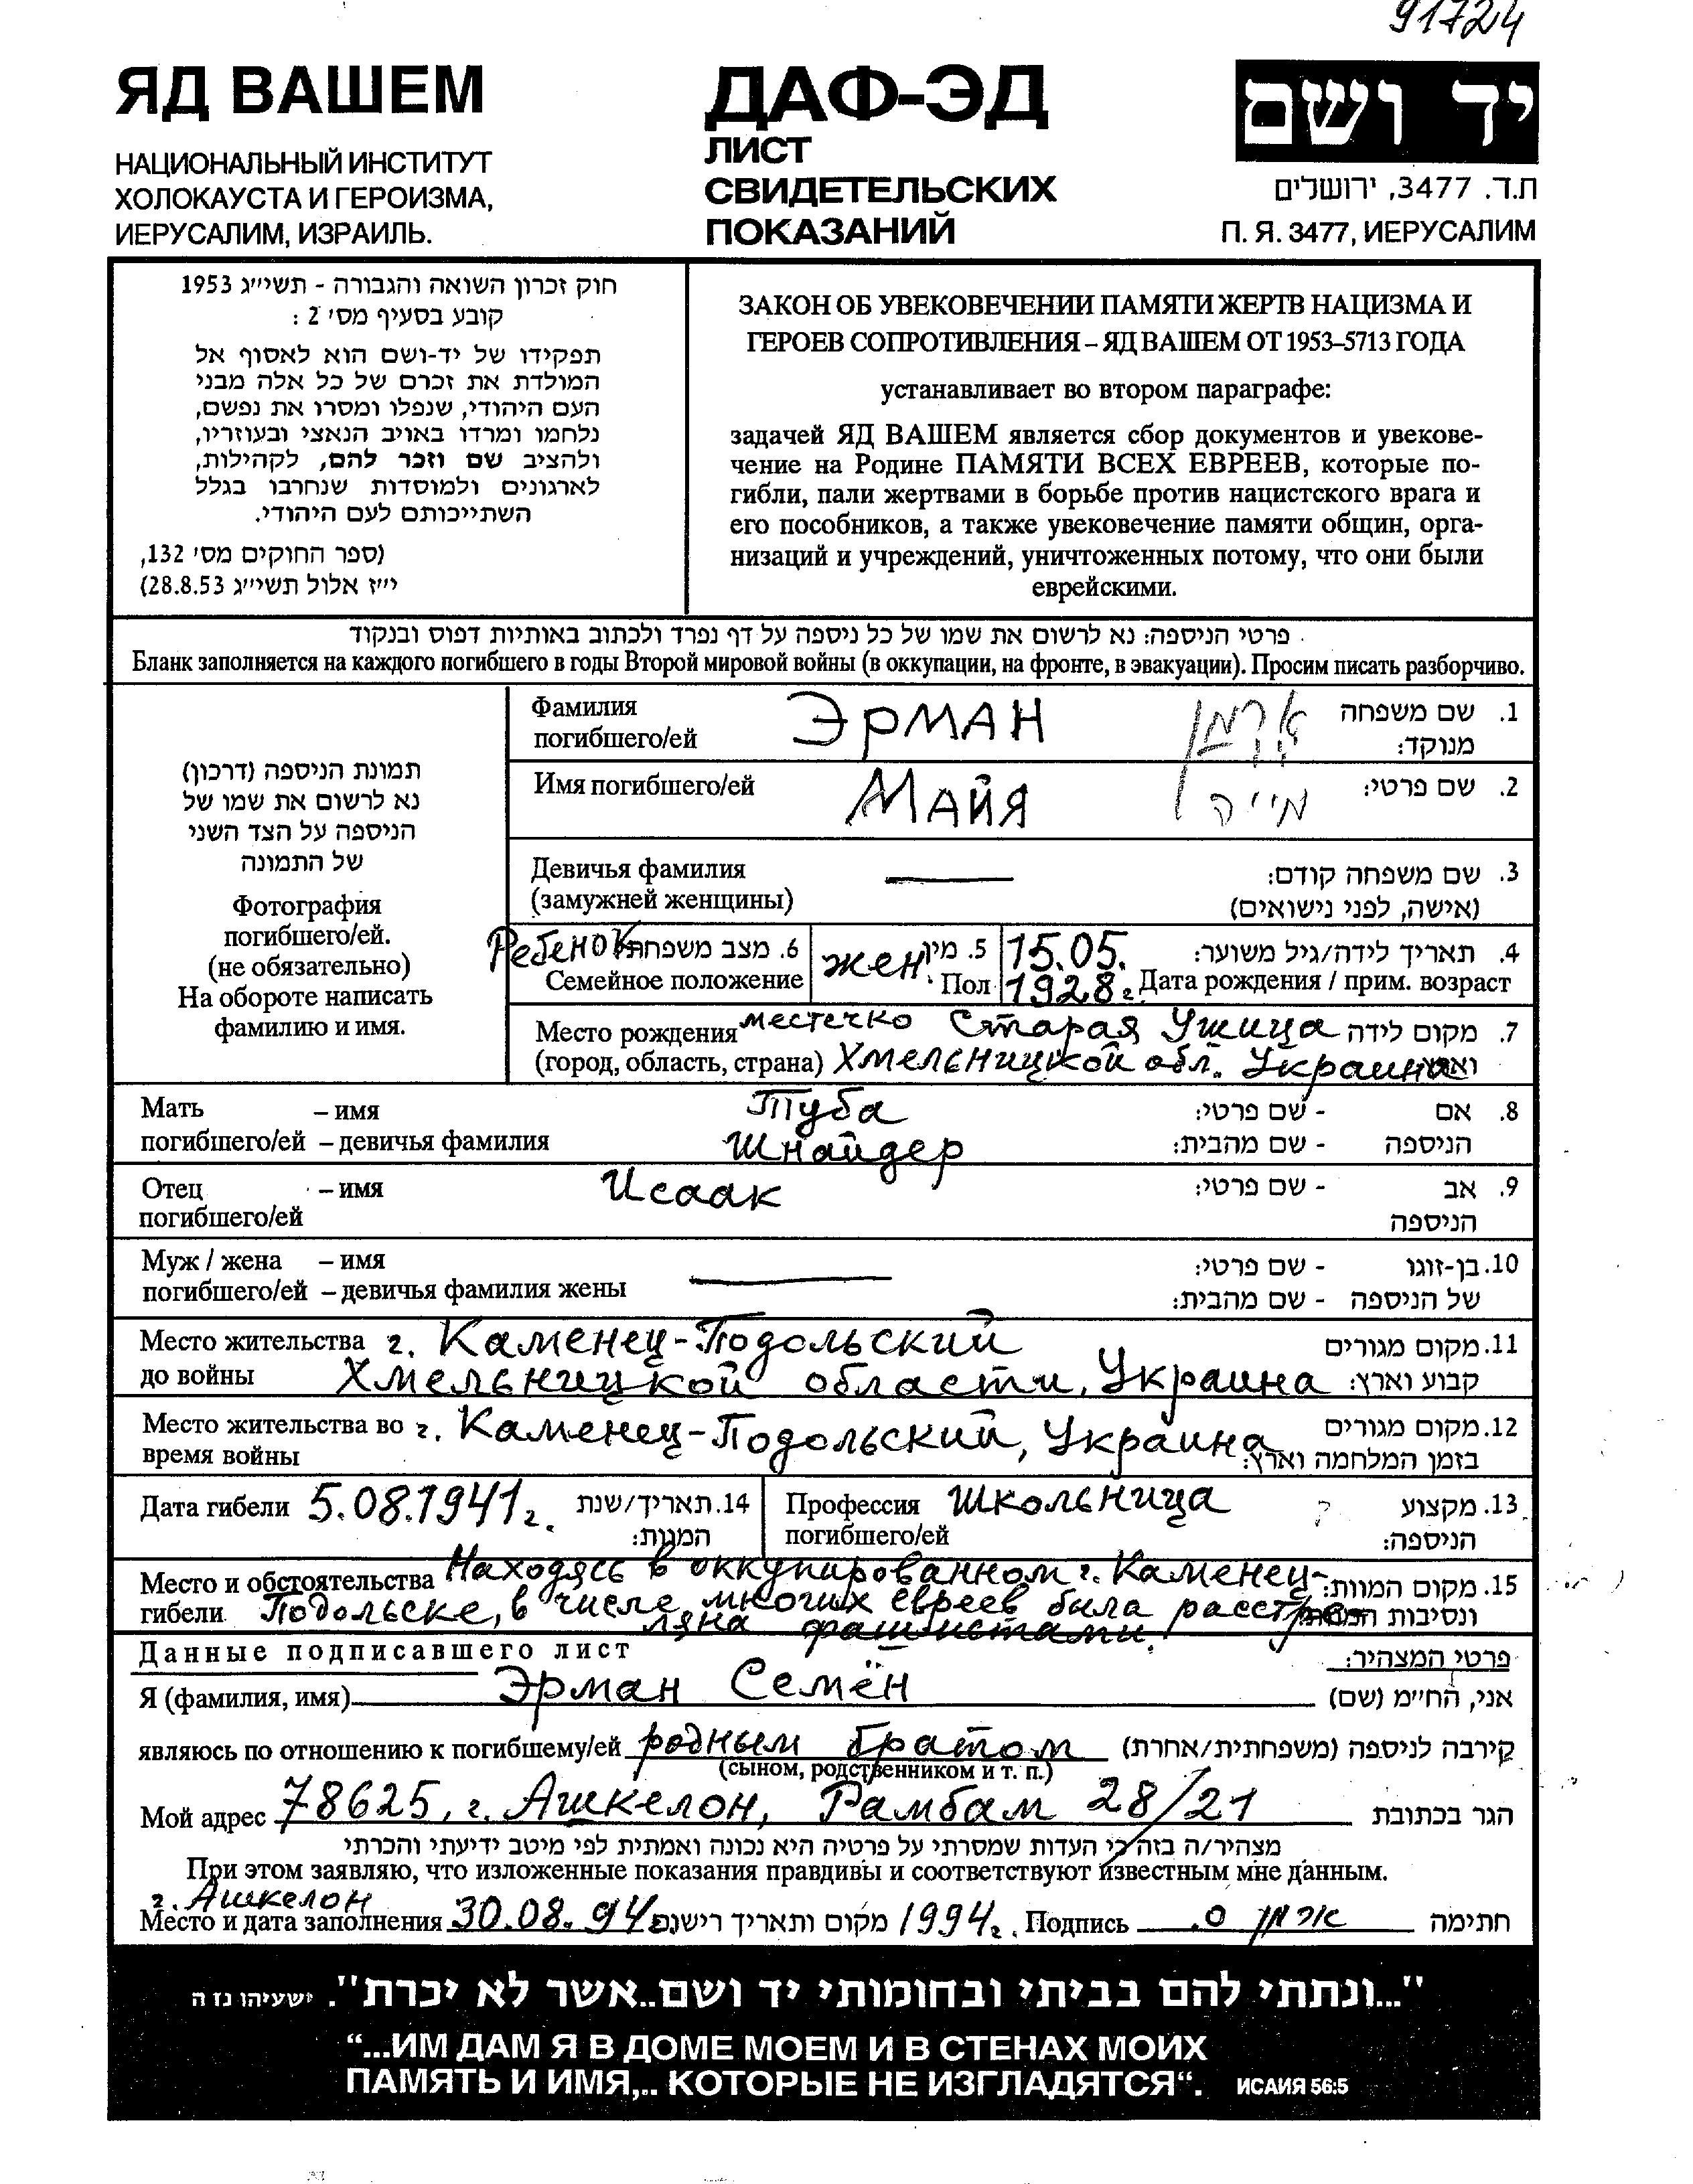 91724
ЯД ВАШЕМ
НАЦИОНАЛЬНЫЙ ИНСТИТУТ
ХОЛОКАУСТА И ГЕРОИЗМА,
ИЕРУСАЛИМ, ИЗРАИЛЬ.
ДАФ-ЭД
ЛИСТ
СВИДЕТЕЛЬСКИХ
ПОКАЗАНИЙ
יד ושם
ת.ד. 3477, ירושלים
П. Я. 3477, ИЕРУСАЛИМ
חוק זכרון השואה והגבורה - תשי״ג 1953
קובע בסעיף מס׳ 2 :
תפקידו של יד-ושם הוא לאסוף אל
המולדת את זכרם של כל אלה מבני
העם היהודי, שנפלו ומסרו את נפשם,
נלחמו ומרדו באויב הנאצי ובעוזריו,
ולהציב שם וזכר להם, לקהילות,
לארגונים ולמוסדות שנחרבו בגלל
השתייכותם לעם היהודי.
(ספר החוקים מס׳ 132,
י״ז אלול תשי״ג 28.8.53)
ЗАКОН ОБ УВЕКОВЕЧЕНИИ ПАМЯТИ ЖЕРТВ НАЦИЗМА И
ГЕРОЕВ СОПРОТИВЛЕНИЯ – ЯД ВАШЕМ ОТ 1953–5713 ГОДА
устанавливает во втором параграфе:
задачей ЯД ВАШЕМ является сбор документов и увекове-
чение на Родине ПАМЯТИ ВСЕХ ЕВРЕЕВ, которые по-
гибли, пали жертвами в борьбе против нацистского врага и
его пособников, а также увековечение памяти общин, орга-
низаций и учреждений, уничтоженных потому, что они были
еврейскими.
פרטי הניספה: נא לרשום את שמו של כל ניספה על דף נפרד ולכתוב באותיות דפוס ובנקוד
Бланк заполняется на каждого погибшего в годы Второй мировой войны (в оккупации, на фронте, в эвакуации). Просим писать разборчиво.
תמונת הניספה (דרכון)
נא לרשום את שמו של
הניספה על הצד השני
של התמונה
Фотография
погибшего/ей.
(не обязательно)
На обороте написать
фамилию и имя.
Фамилия ЭРМАН ארמן 1. שם משפחה
погибшего/ей מנוקד:
Имя погибшего/ей МАЙЯ מייה 2. שם פרטי:
Девичья фамилия — 3. שם משפחה קודם:
(замужней женщины) (אישה, לפני נישואים)
Ребенок 6. מצב משפחתי жен 5. מין 15.05. 4. תאריך לידה/גיל משוער:
Семейное положение Пол 1928 г. Дата рождения / прим. возраст
Место рождения местечко Старая Ушица 7. מקום לידה
(город, область, страна) Хмельницкой обл. Украина וארץ
Мать – имя Туба 8. אם - שם פרטי:
погибшего/ей – девичья фамилия Шнайдер הניספה - שם מהבית:
Отец – имя Исаак 9. אב - שם פרטי:
погибшего/ей הניספה
Муж / жена – имя 10. בן-זוגו - שם פרטי:
погибшего/ей – девичья фамилия жены — של הניספה - שם מהבית:
Место жительства г. Каменец-Подольский 11. מקום מגורים
до войны Хмельницкой области, Украина קבוע וארץ:
Место жительства во г. Каменец-Подольский, Украина 12. מקום מגורים
время войны בזמן המלחמה וארץ:
Дата гибели 5.08.1941 г. 14. תאריך/שנת Профессия Школьница 13. מקצוע
המוות: погибшего/ей הניספה:
Место и обстоятельства Находясь в оккупированном г. Каменец- 15. מקום המוות
гибели Подольске, в числе многих евреев была расстре- ונסיבות המוות:
ляна фашистами.
Данные подписавшего лист פרטי המצהיר:
Я (фамилия, имя) Эрман Семён אני, החי״מ (שם)
являюсь по отношению к погибшему/ей родным братом קירבה לניספה (משפחתית/אחרת)
(сыном, родственником и т. п.)
Мой адрес 78625, г. Ашкелон, Рамбам 28/21 הגר בכתובת
מצהיר/ה בזה כי העדות שמסרתי על פרטיה היא נכונה ואמתית לפי מיטב ידיעתי והכרתי
При этом заявляю, что изложенные показания правдивы и соответствуют известным мне данным.
г. Ашкелон
Место и дата заполнения 30.08.94 г. מקום ותאריך רישום 1994 г. Подпись ארמן ס. חתימה
"...ונתתי להם בביתי ובחומותי יד ושם..אשר לא יכרת". ישעיהו נז ה
“...ИМ ДАМ Я В ДОМЕ МОЕМ И В СТЕНАХ МОИХ
ПАМЯТЬ И ИМЯ,.. КОТОРЫЕ НЕ ИЗГЛАДЯТСЯ“. ИСАИЯ 56:5